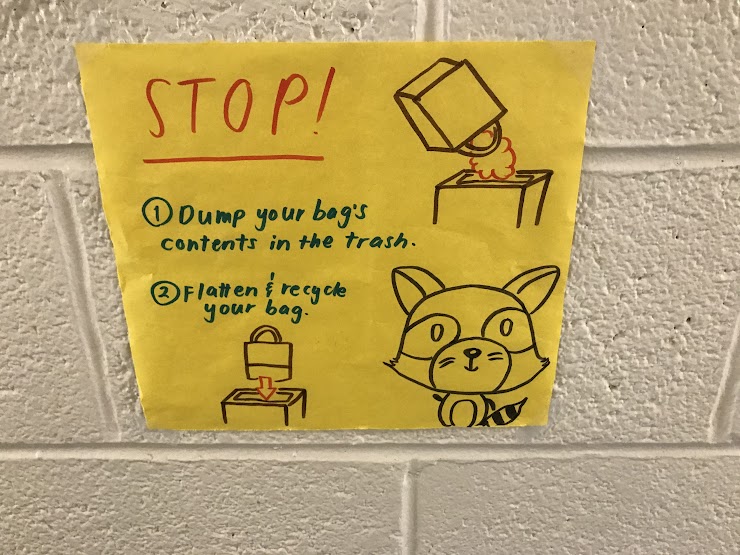 STOP!
① Dump your bag's
contents in the trash.
② Flatten & recycle
your bag.